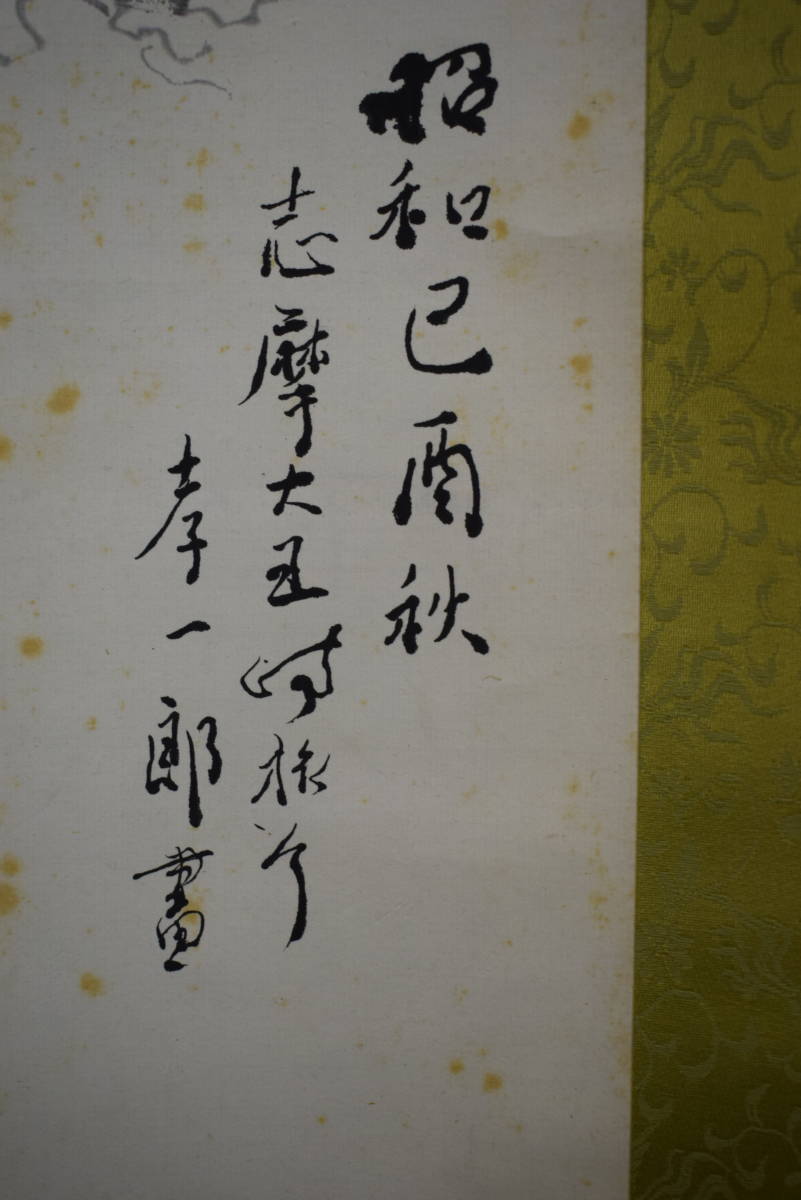 昭和己酉秋
志摩大王崎旅行
孝一郎畫